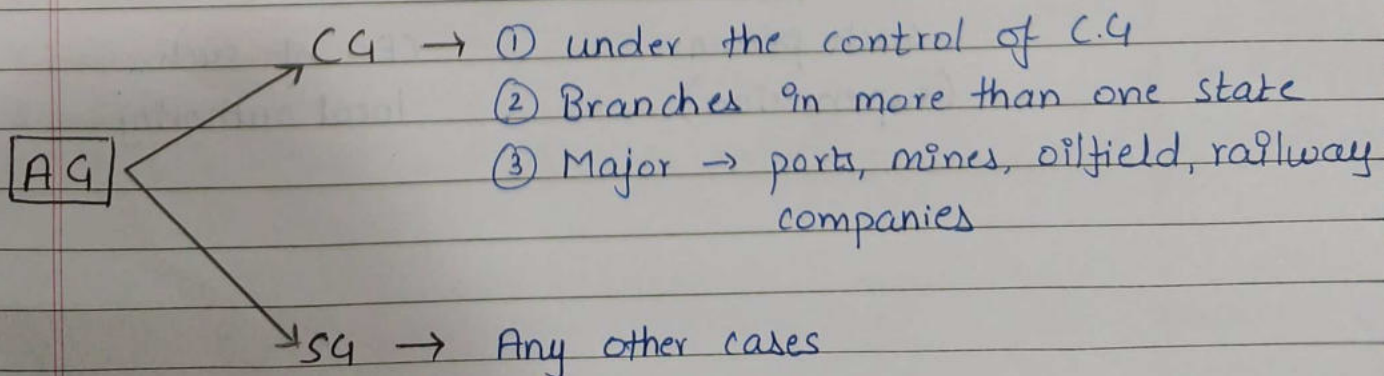 CG → ① under the control of C.G
② Branches in more than one state
AG
③ Major → ports, mines, oilfield, railway
companies
SG → Any other cases